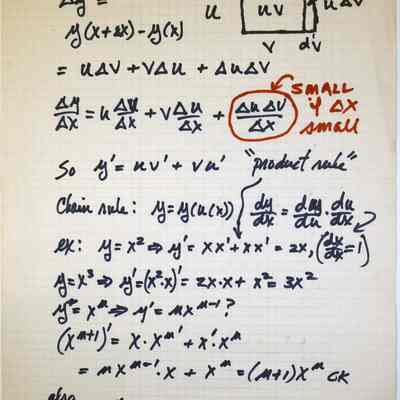 Δy =
y(x+Δx) - y(x)
u uv uΔv
v dv
= uΔv + vΔu + ΔuΔv
Δy/Δx = u Δv/Δx + v Δu/Δx + ΔuΔv/Δx
SMALL
if Δx
small
So y' = uv' + vu' "product rule"
Chain rule: y = y(u(x)) dy/dx = dy/du · du/dx
ex: y = x² ⇒ y' = xx' + xx' = 2x, (dx/dx = 1)
y = x³ ⇒ y' = (x²·x)' = 2x·x + x² = 3x²
y = xⁿ ⇒ y' = nxⁿ⁻¹ ?
(xⁿ⁺¹)' = x·xⁿ' + x'·xⁿ
= nxⁿ⁻¹·x + xⁿ = (n+1)xⁿ OK
also